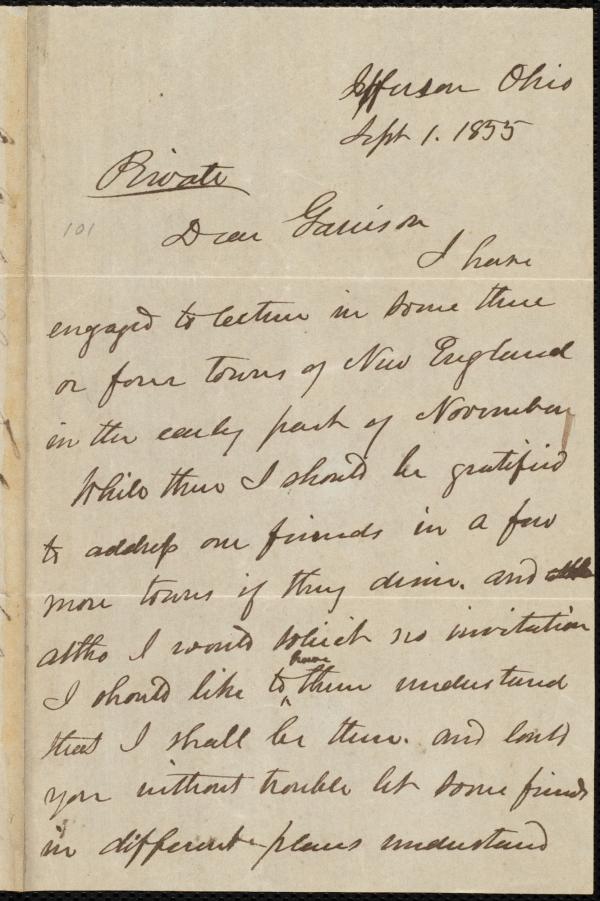 Jefferson Ohio
Sept 1. 1855
Private
101
Dear Garrison
I have
engaged to lecture in some three
or four towns of New England
in the early part of November
While there I should be gratified
to address our friends in a few
more towns if they desire. and
altho I would solicit no invitation
I should like to have them understand
that I shall be there. and could
you without trouble let some friends
in different places understand